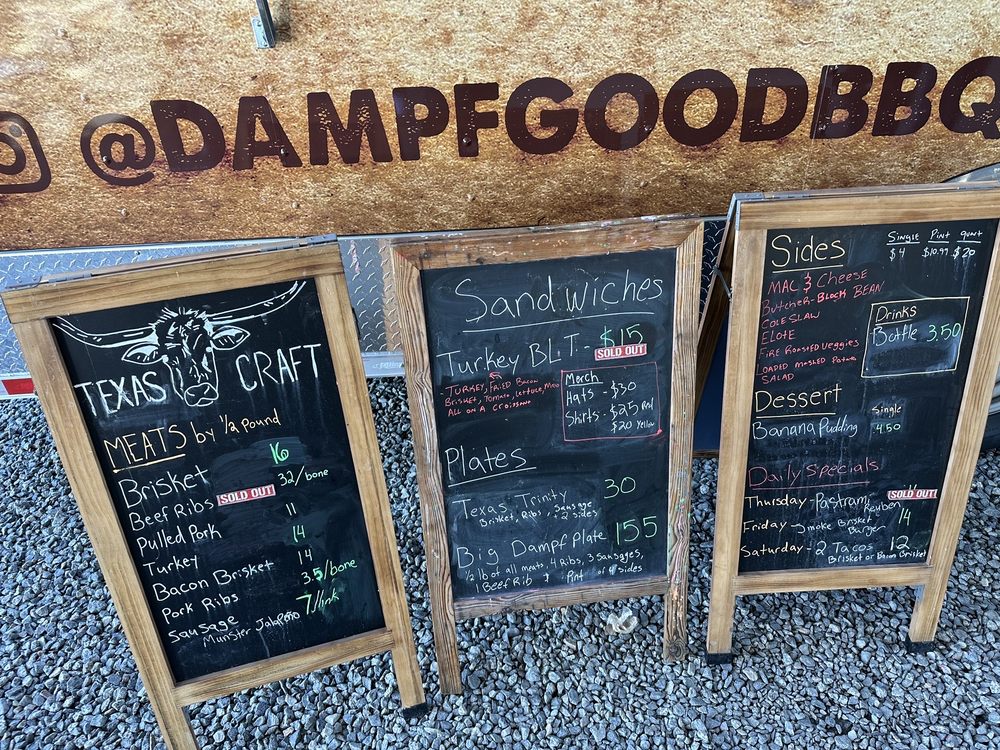 @DAMPFGOODBBQ
TEXAS CRAFT
MEATS by 1/2 Pound
Brisket 16
Beef Ribs SOLD OUT 32/bone
Pulled Pork 11
Turkey 14
Bacon Brisket 14
Pork Ribs 3.5/bone
Sausage 7/link
Munster Jalapeño
Sandwiches
Turkey BLT - $15
SOLD OUT
- TURKEY, FRIED Bacon
Brisket, Tomato, Lettuce, Mayo
ALL ON A Croissant
Merch
Hats - $30
Shirts - $25 Red
$20 Yellow
Plates
Texas Trinity 30
Brisket, Ribs, Sausage
2 sides
Big Dampf Plate 155
1/2 lb of all meats, 4 Ribs, 3 Sausages,
1 Beef Rib & Pint of 4 sides
Sides
Single Pint Quart
$4 $10.99 $20
MAC & Cheese
Butcher-Block BEAN
COLESLAW
ELOTE
FIRE ROASTED Veggies
LOADED MASHED Potato
SALAD
Drinks
Bottle 3.50
Dessert
Single
Banana Pudding 4.50
Daily Specials
Thursday - Pastrami Reuben SOLD OUT
Friday - Smoke Brisket Burger 14
Saturday - 2 Tacos 12
Brisket or Bacon Brisket